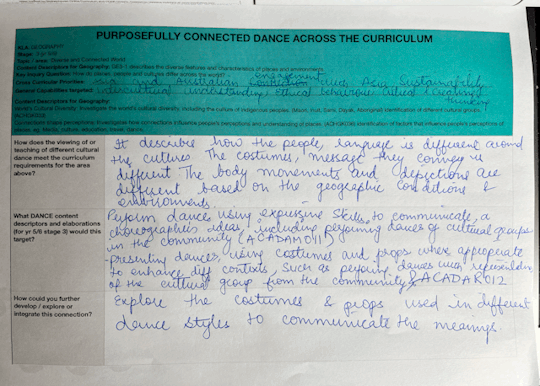 PURPOSEFULLY CONNECTED DANCE ACROSS THE CURRICULUM
KLA: GEOGRAPHY
Stage: 3 yr 5/6
Topic / area: Diverse and Connected World
Content Descriptors for Geography: GE3-1 describes the diverse features and characteristics of places and environments
Key Inquiry Question: How do places, people and cultures differ across the world?
engagement
Cross Curricular Priorities: Asia and Australian with Asia Sustainability
General Capabilities targeted: intercultural understanding, Ethical behaviour critical & creative
thinking
Content Descriptors for Geography:
World's Cultural Diversity: Investigate the world's cultural diversity, including the culture of indigenous peoples. (Maori, Inuit, Sami, Dayak, Aboriginal) identification of different cultural groups.
(ACHGK033)
Connections shape perceptions: Investigate how connections influence people's perceptions and understanding of places, (ACHGK036) identification of factors that influence people's perceptions of
places, eg. Media, culture, education, travel, dance.
How does the viewing of or
teaching of different cultural
dance meet the curriculum
requirements for the area
above?
It describes how the people, language is different around
the cultures. The costumes, message they convey is
different. The body movements and depictions are
different based on the geographic conditions &
environments.
What DANCE content
descriptors and elaborations
(for yr 5/6 stage 3) would this
target?
Perform dance using expressive skills to communicate, a
choreographic ideas, including performing dances of cultural groups
in the community (ACADAM011)
presenting dances, using costumes and props where appropriate
to enhance diff contexts, such as performing dances with
of the cultural group from the community & ACADAR012
How could you further
develop / explore or
integrate this connection?
Explore the costumes & props used in different
dance styles to communicate the meanings.